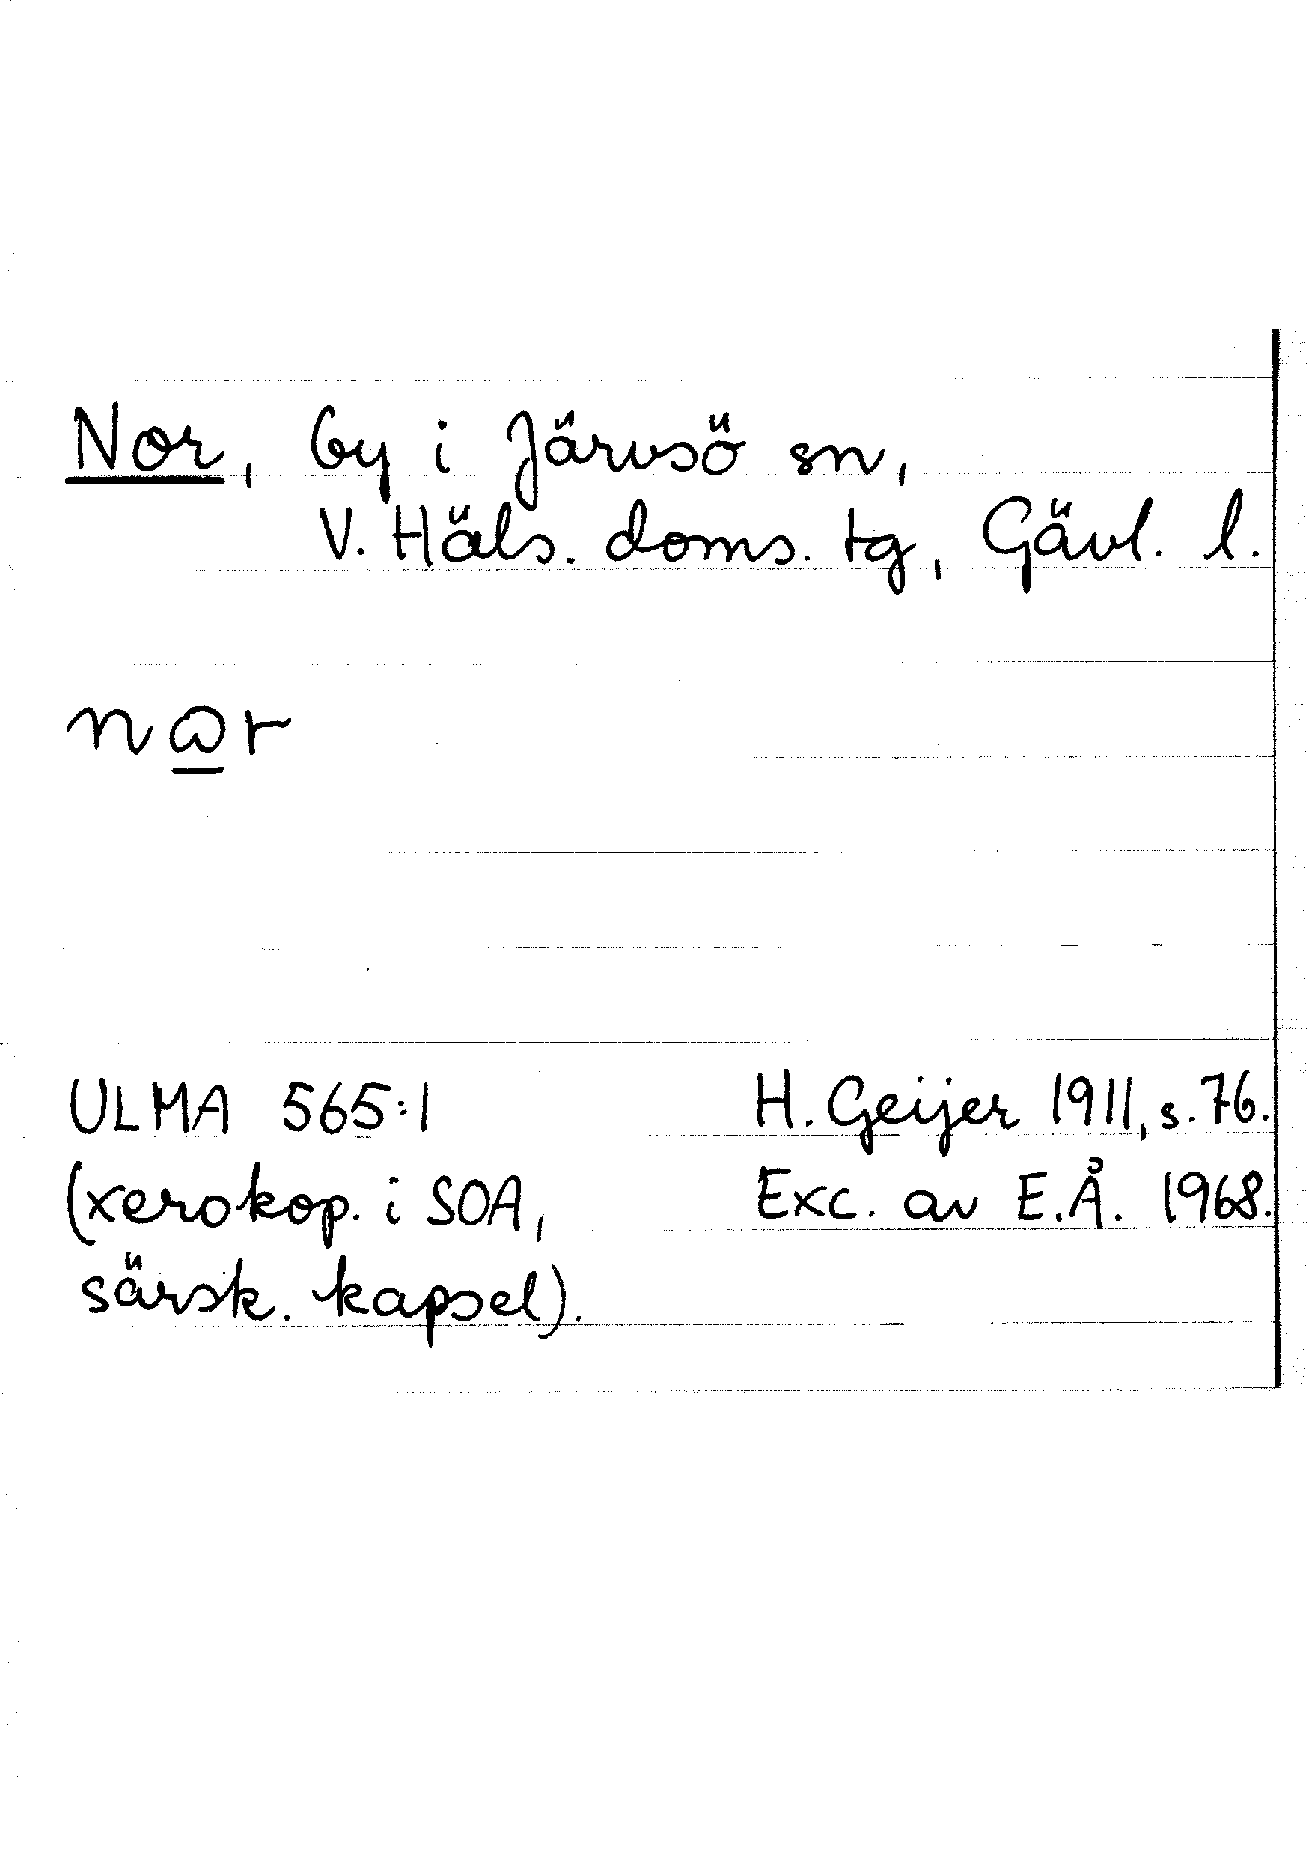 Nor, by i Järvsö sn,
V. Häls. doms. tg, Gävl. l.
nꞷr
ULMA 565:1
(xerokop. i SOA,
särsk. kapsel).
H. Geijer 1911, s. 76.
Exc. av E.Å. 1968.